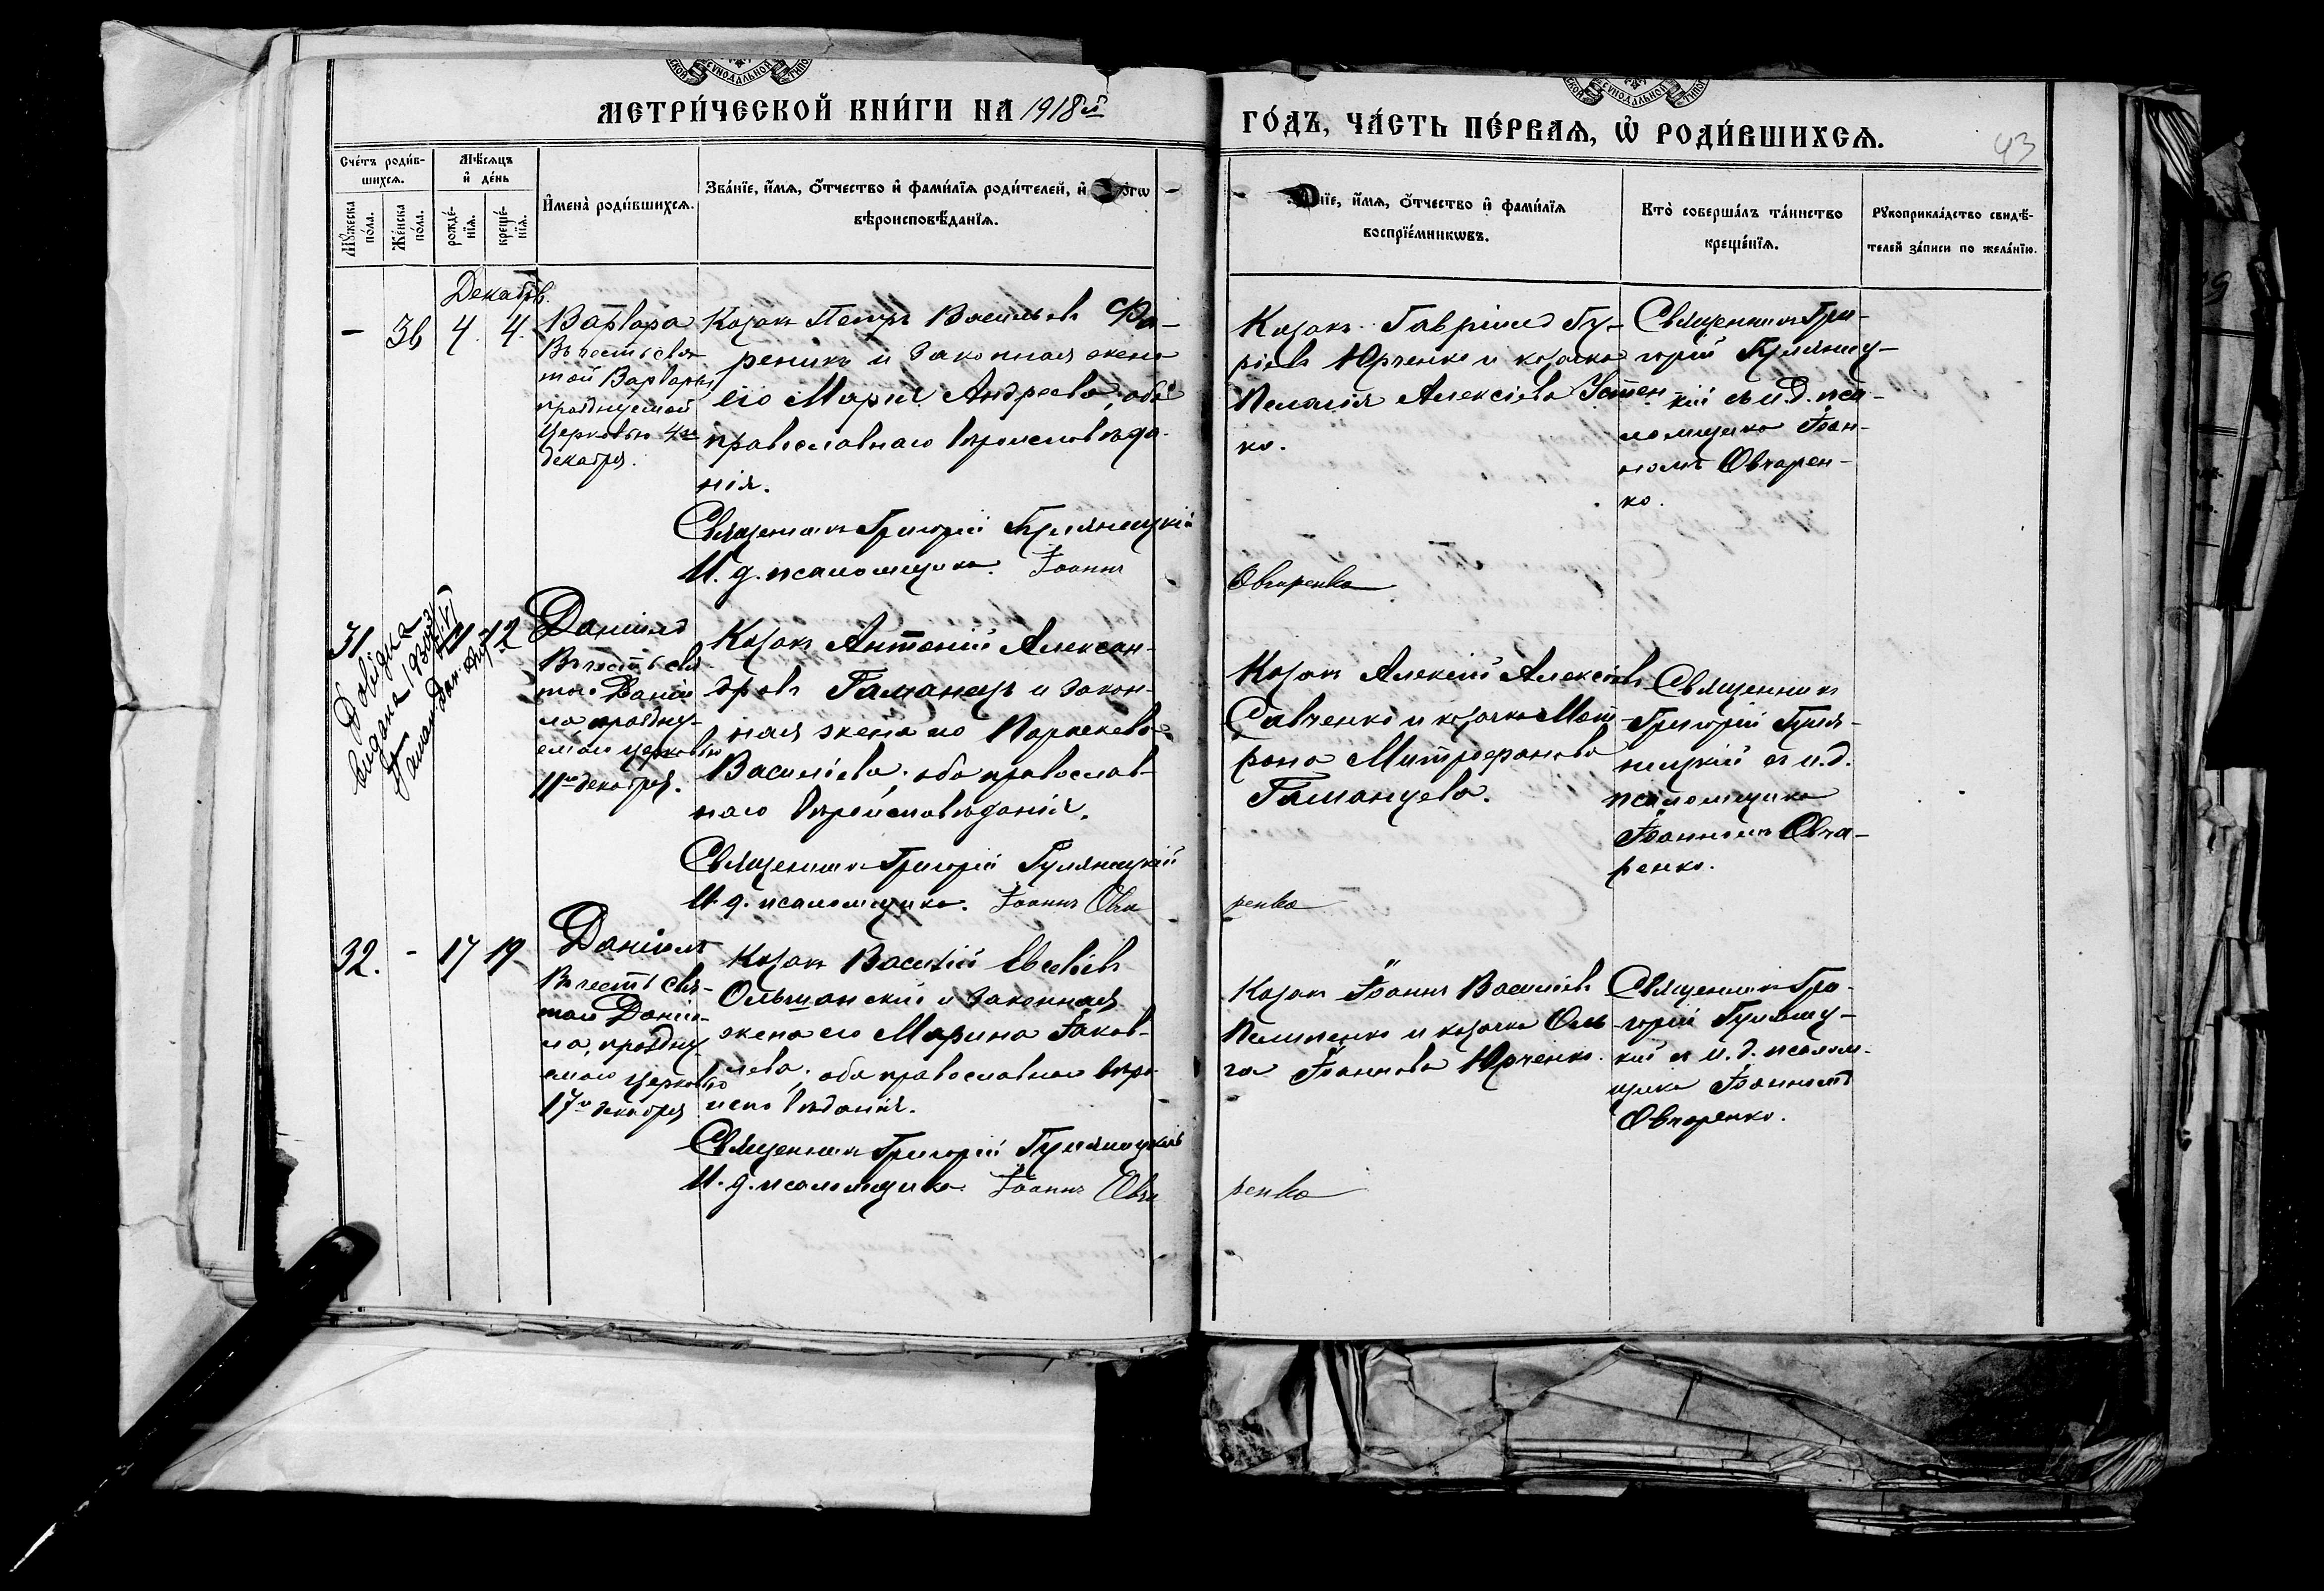 МЕТРИ́ЧЕСКОЙ КНИ́ГИ НА 1918й
ГО́ДЪ, ЧА́СТЬ ПЕ́РВАѦ, Ѡ҆ РОДИ́ВШИХСѦ.
43
Сче́тъ роди́в-
шихсѧ.
Мѣ́сѧцъ
и҆ де́нь
Мꙋ́жеска
по́ла.
Же́нска
по́ла.
рожде́-
нїѧ.
креще́-
нїѧ.
И҆мена̀ роди́вшихсѧ.
Зва́нїе, и҆́мѧ, ѻ҆́тчество и҆ фами́лїѧ роди́телей, и҆
вѣроисповѣ́данїѧ.
нїе, и҆́мѧ, ѻ҆́тчество и҆ фами́лїѧ
воспрїе́мникѡвъ.
Кто̀ соверша́лъ та́инство
креще́нїѧ.
Рꙋкоприкла́дство свидѣ́-
телей за́писи по жела́нїю.
Декабрь.
- 36 4. 4.
Варвара
Въ честь свя-
той Варвары
празднуемой
Церковью 4го
декабря.
Козакъ Петръ Васильевъ Ва-
реникъ и законная жена
его Марія Андреева, оба
православнаго вѣроисповѣда-
нія.
Священникъ Григорій Гуляницкій
И. д. псаломщика Іоаннъ
Козакъ Гавріилъ Гу-
ріевъ Юрченко и козачка
Пелагія Алексіева Устен
ко.
Овчаренко
Священникъ Гри-
горій Гуляниц-
кій съ и. д. пса-
ломщика Іоан-
номъ Овчарен-
ко.
31 11 12
Довідка
видана 1930
Даніилъ
Въ честь свя-
таго Даніи
ла, праздну-
емаго церковью
11го декабря.
Козакъ Антоній Алексан-
дровъ Гаманецъ и закон-
ная жена его Параскева
Васильева, оба православ-
наго вѣроисповѣданія.
Священникъ Григорій Гуляницкій
И. д. псаломщика. Іоаннъ Овча
Козакъ Алексій Алексіевъ
Савченко и козачка Мат-
рона Митрофанова
Гаманцева.
ренко
Священникъ
Григорій Гуля-
ницкій съ и. д.
псаломщика
Іоанномъ Овча-
ренко.
32. - 17 19
Даніилъ
Въ честь свя-
таго Даніи-
ла, праздну
емаго церковью
17го декабря
Козакъ Василій Евсевіевъ
Ольшанскій и законная
жена его Марина Іаков-
лева, оба православнаго вѣро
исповѣданія.
Священникъ Григорій Гуляницкій
И. д. псаломщика Іоаннъ Овча
Козакъ Іоаннъ Васильевъ
Пелипенко и козачка Оль
га Іоаннова Юрченко.
ренко
Священникъ Гри-
горій Гуляниц-
кій съ и. д. псалом-
щика Іоанномъ
Овчаренко.